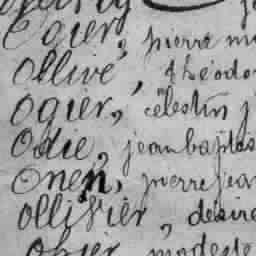 Ogier, pierre
Ollive, théodo
Ogier, célestin j
Odie, jean baptis
Onen, pierre jean
ollivier, désiré
ogier modeste